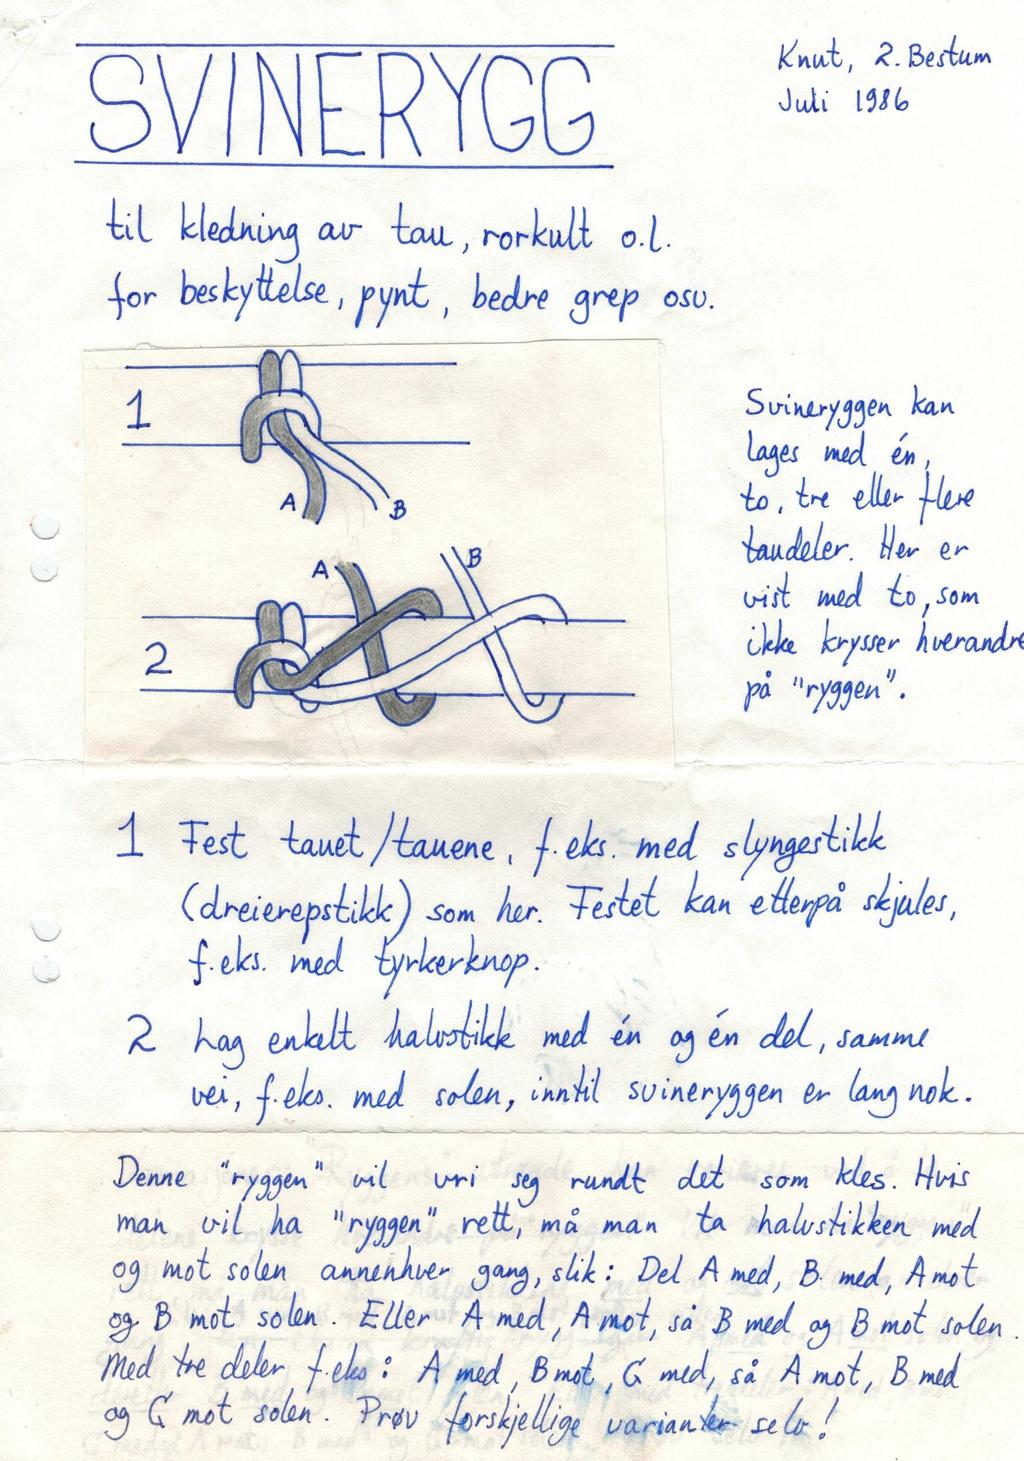 SVINERYGG
Knut, 2. Bestum
Juli 1986
til kledning av tau, rorkult o.l.
for beskyttelse, pynt, bedre grep osv.
1
A
B
A
B
2
Svineryggen kan
lages med én,
to, tre eller flere
taudeler. Her er
vist med to, som
ikke krysser hverandre
på "ryggen".
1 Fest tauet/tauene, f.eks. med slyngestikk
(dreierepstikk) som her. Festet kan etterpå skjules,
f.eks. med tyrkerknop.
2 Lag enkelt halvstikk med én og én del, samme
vei, f.eks. med solen, inntil svineryggen er lang nok.
Denne "ryggen" vil vri seg rundt det som kles. Hvis
man vil ha "ryggen" rett, må man ta halvstikken med
og mot solen annenhver gang, slik: Del A med, B med, A mot
og B mot solen. Eller A med, A mot, så B med og B mot solen.
Med tre deler f.eks: A med, B mot, C med, så A mot, B med
og C mot solen. Prøv forskjellige varianter selv!